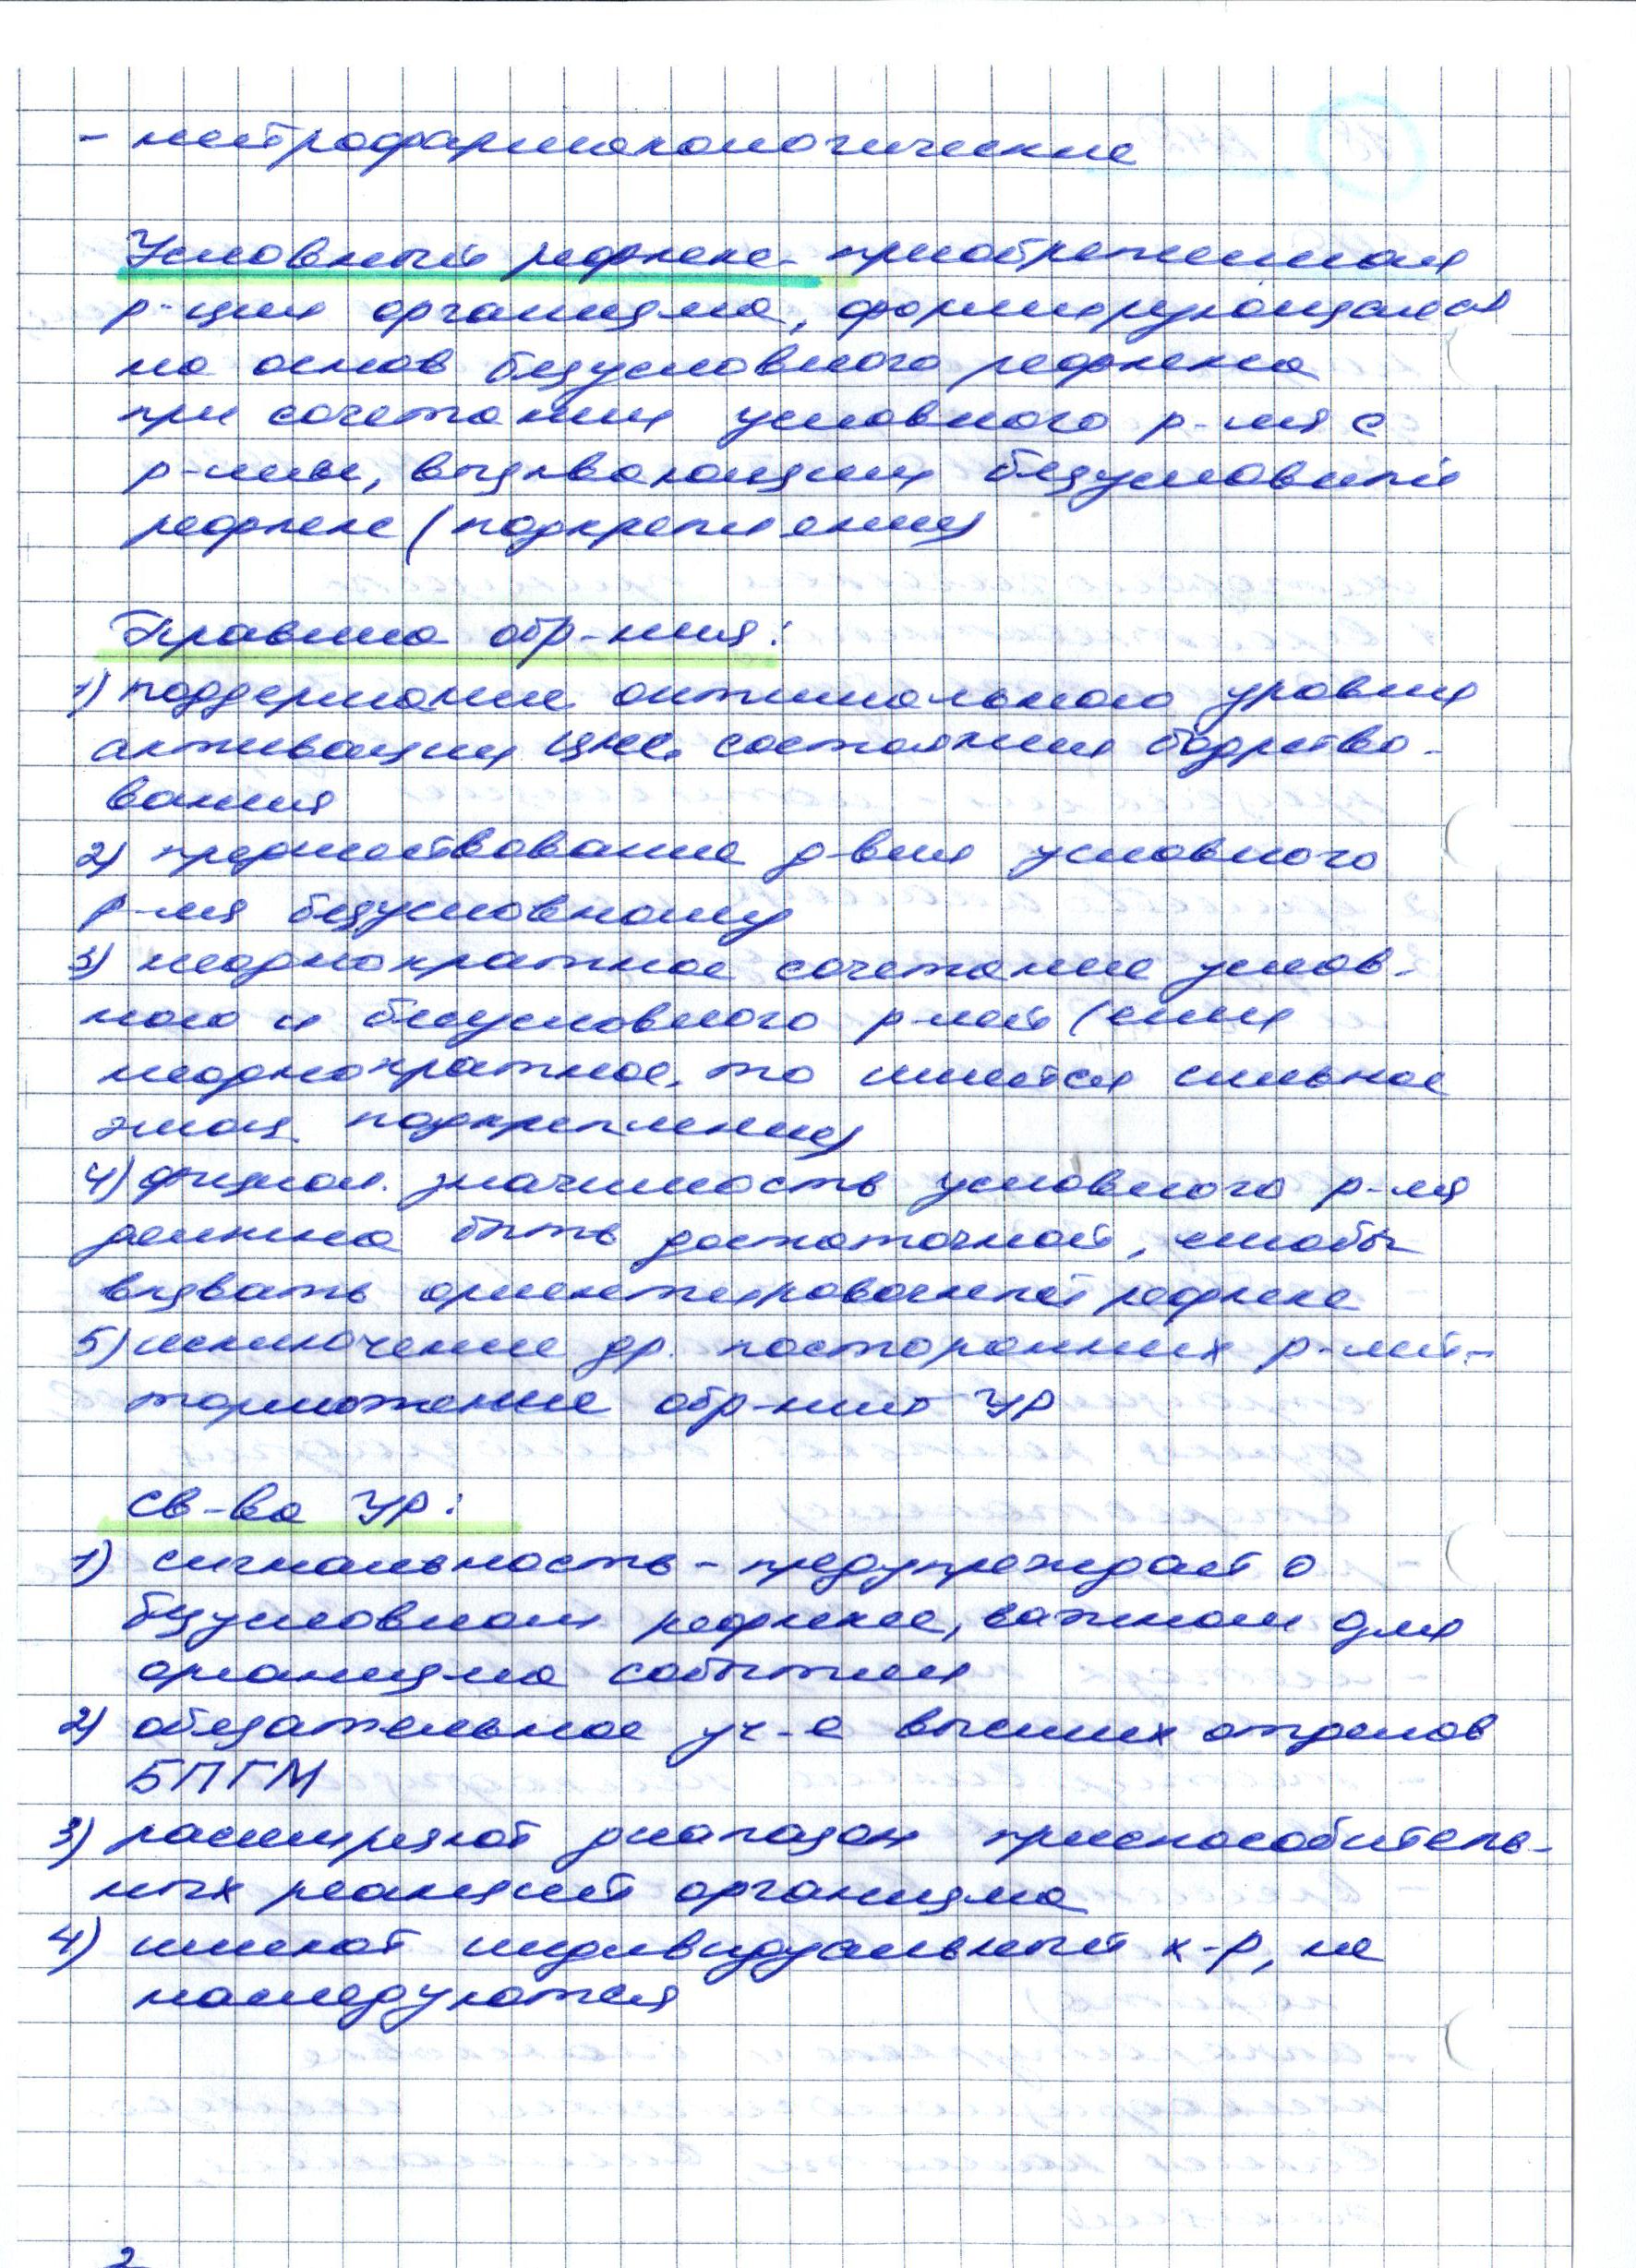 - нейрофармакологические
Условный рефлекс - приобретенная
р-ция организма, формирующаяся
на основ безусловного рефлекса
при сочетании условного р-ля с
р-лем, вызывающим безусловный
рефлекс (подкрепление)
Правила обр-ния:
1) поддержание оптимального уровня
активации ЦНС, состояния бодрство-
вания
2) предшествование д-вия условного
р-ля безусловному
3) неоднократное сочетание услов-
ного и безусловного р-лей (если
неоднократное, то имеется сильное
эмоц. подкрепление)
4) физиол. значимость условного р-ля
должна быть достаточной, чтобы
вызвать ориентировочный рефлекс
5) исключение др. посторонних р-лей -
торможение обр-ния УР
Св-ва УР:
1) сигнальность - предупреждает о
безусловном рефлексе, важном для
организма событии
2) обязательное уч-е высших отделов
БПГМ
3) расширяют диапазон приспособитель-
ных реакций организма
4) имеют индивидуальный х-р, не
наследуются
2